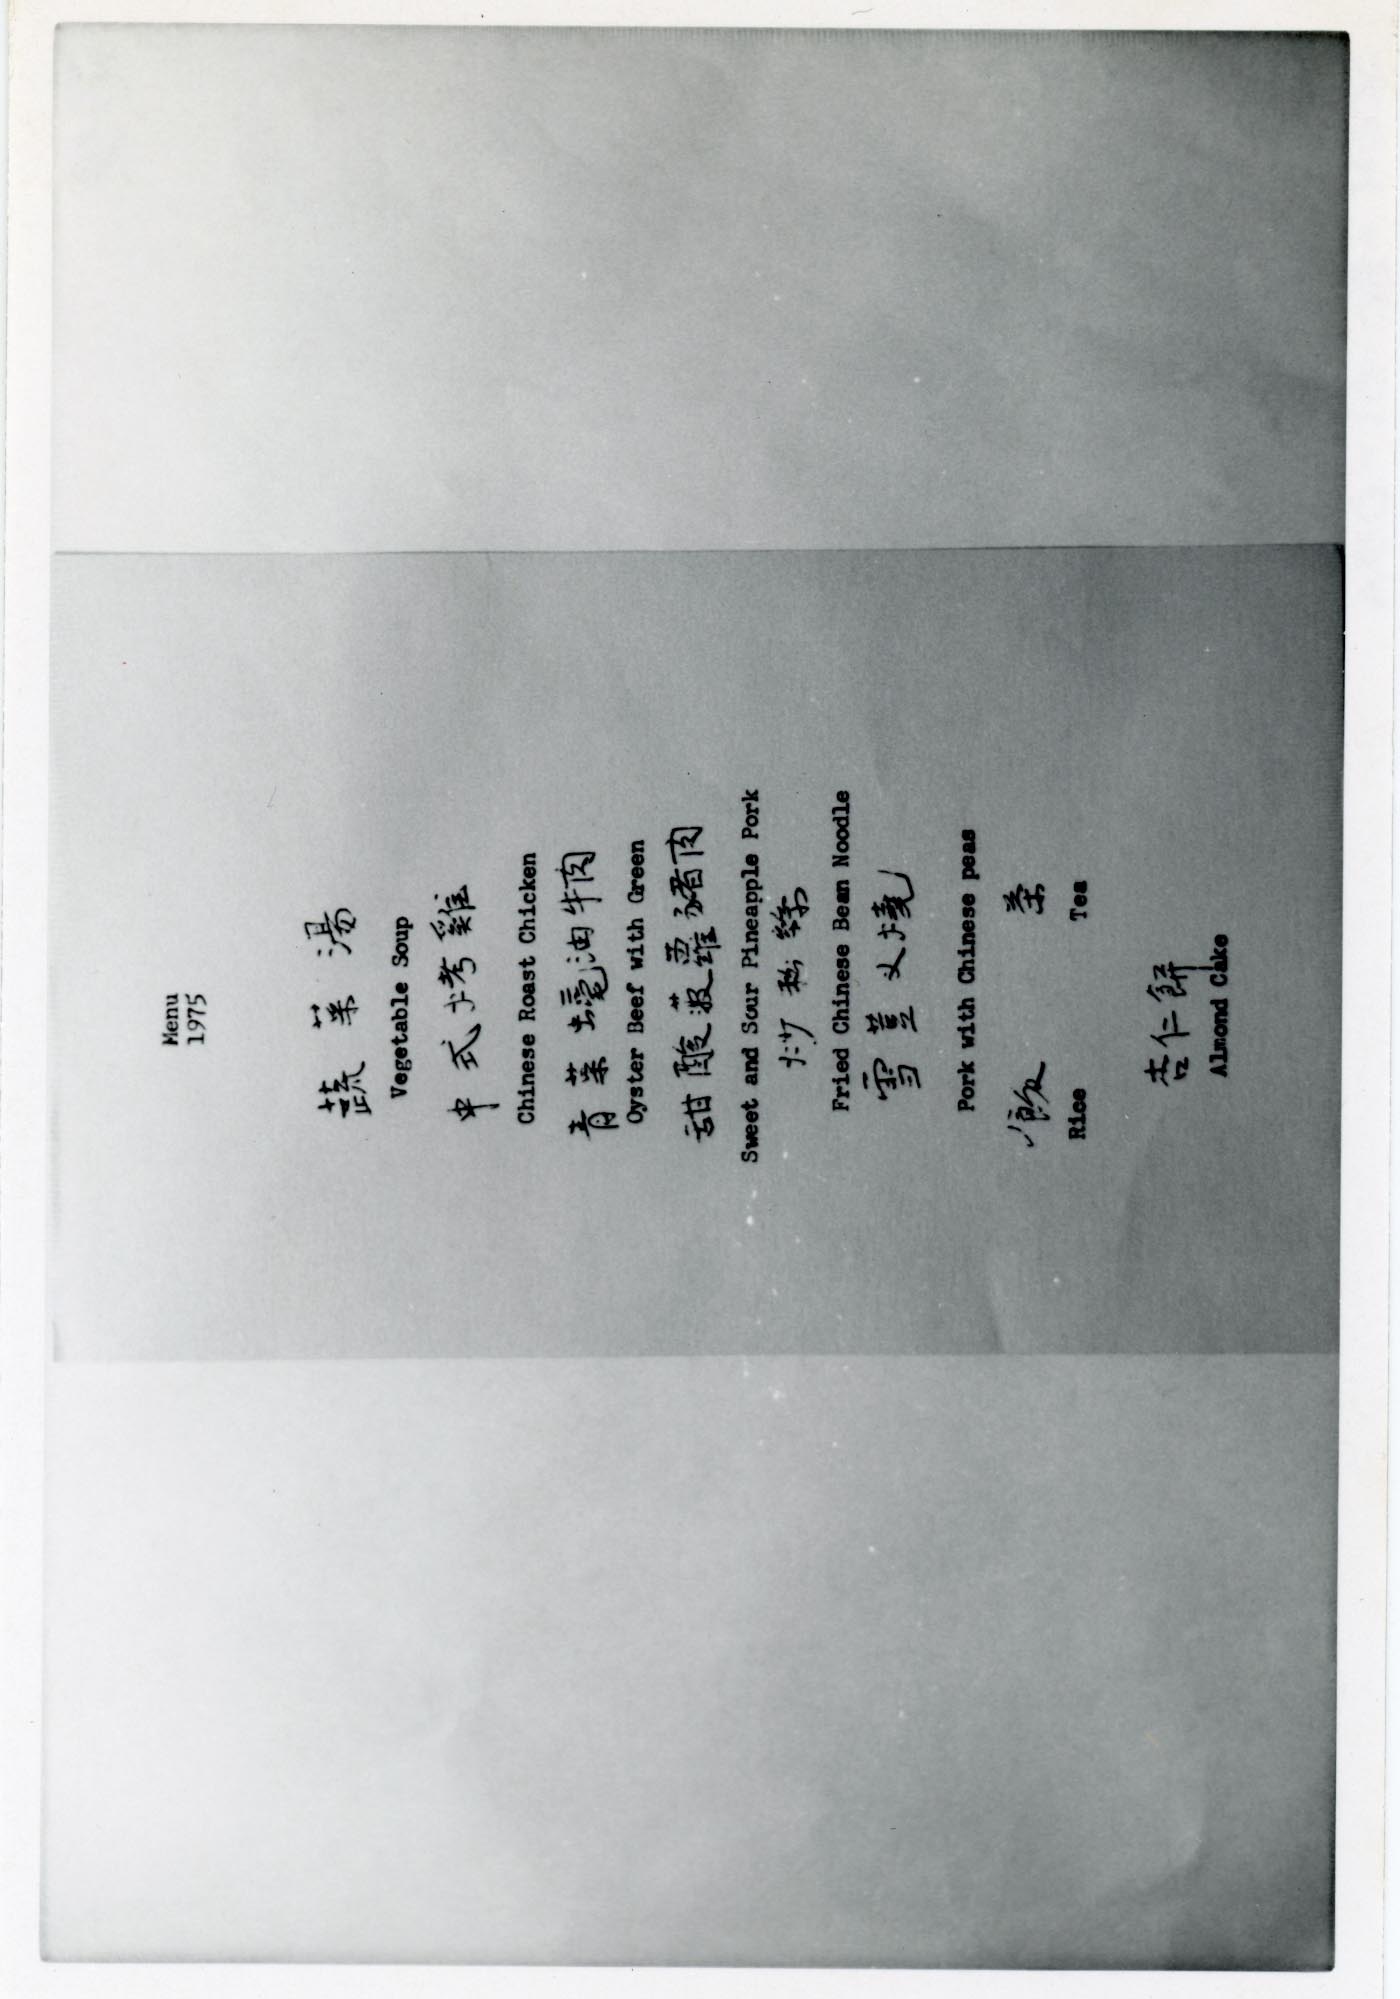 Menu
1975
蔬菜湯
Vegetable Soup
中式烤雞
Chinese Roast Chicken
青菜蠔油牛肉
Oyster Beef with Green
甜酸菠蘿豬肉
Sweet and Sour Pineapple Pork
炒粉絲
Fried Chinese Bean Noodle
雪荳叉燒
Pork with Chinese peas
飯 茶
Rice Tea
杏仁餅
Almond Cake